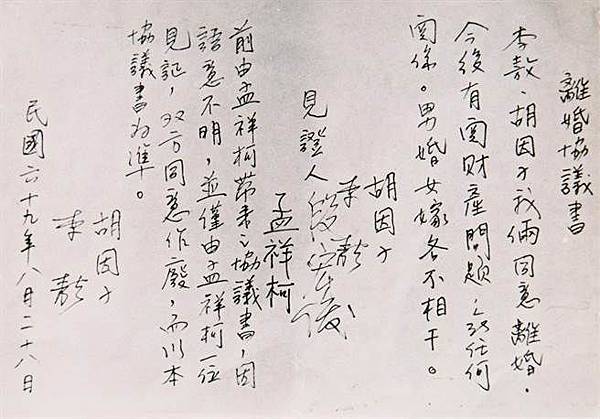 離婚協議書
李敖、胡因子我倆同意離婚，
今後有関財産問题之及任何
関係。男婚女嫁各不相干。
胡因子
李敖
見證人段宏俊
孟祥柯
前由孟祥柯帶来之協議書，因
語意不明，並僅由孟祥柯一位
見証，双方同意作廢，而以本
協議書为準。
胡因子
李敖
民國六十九年八月二十八日